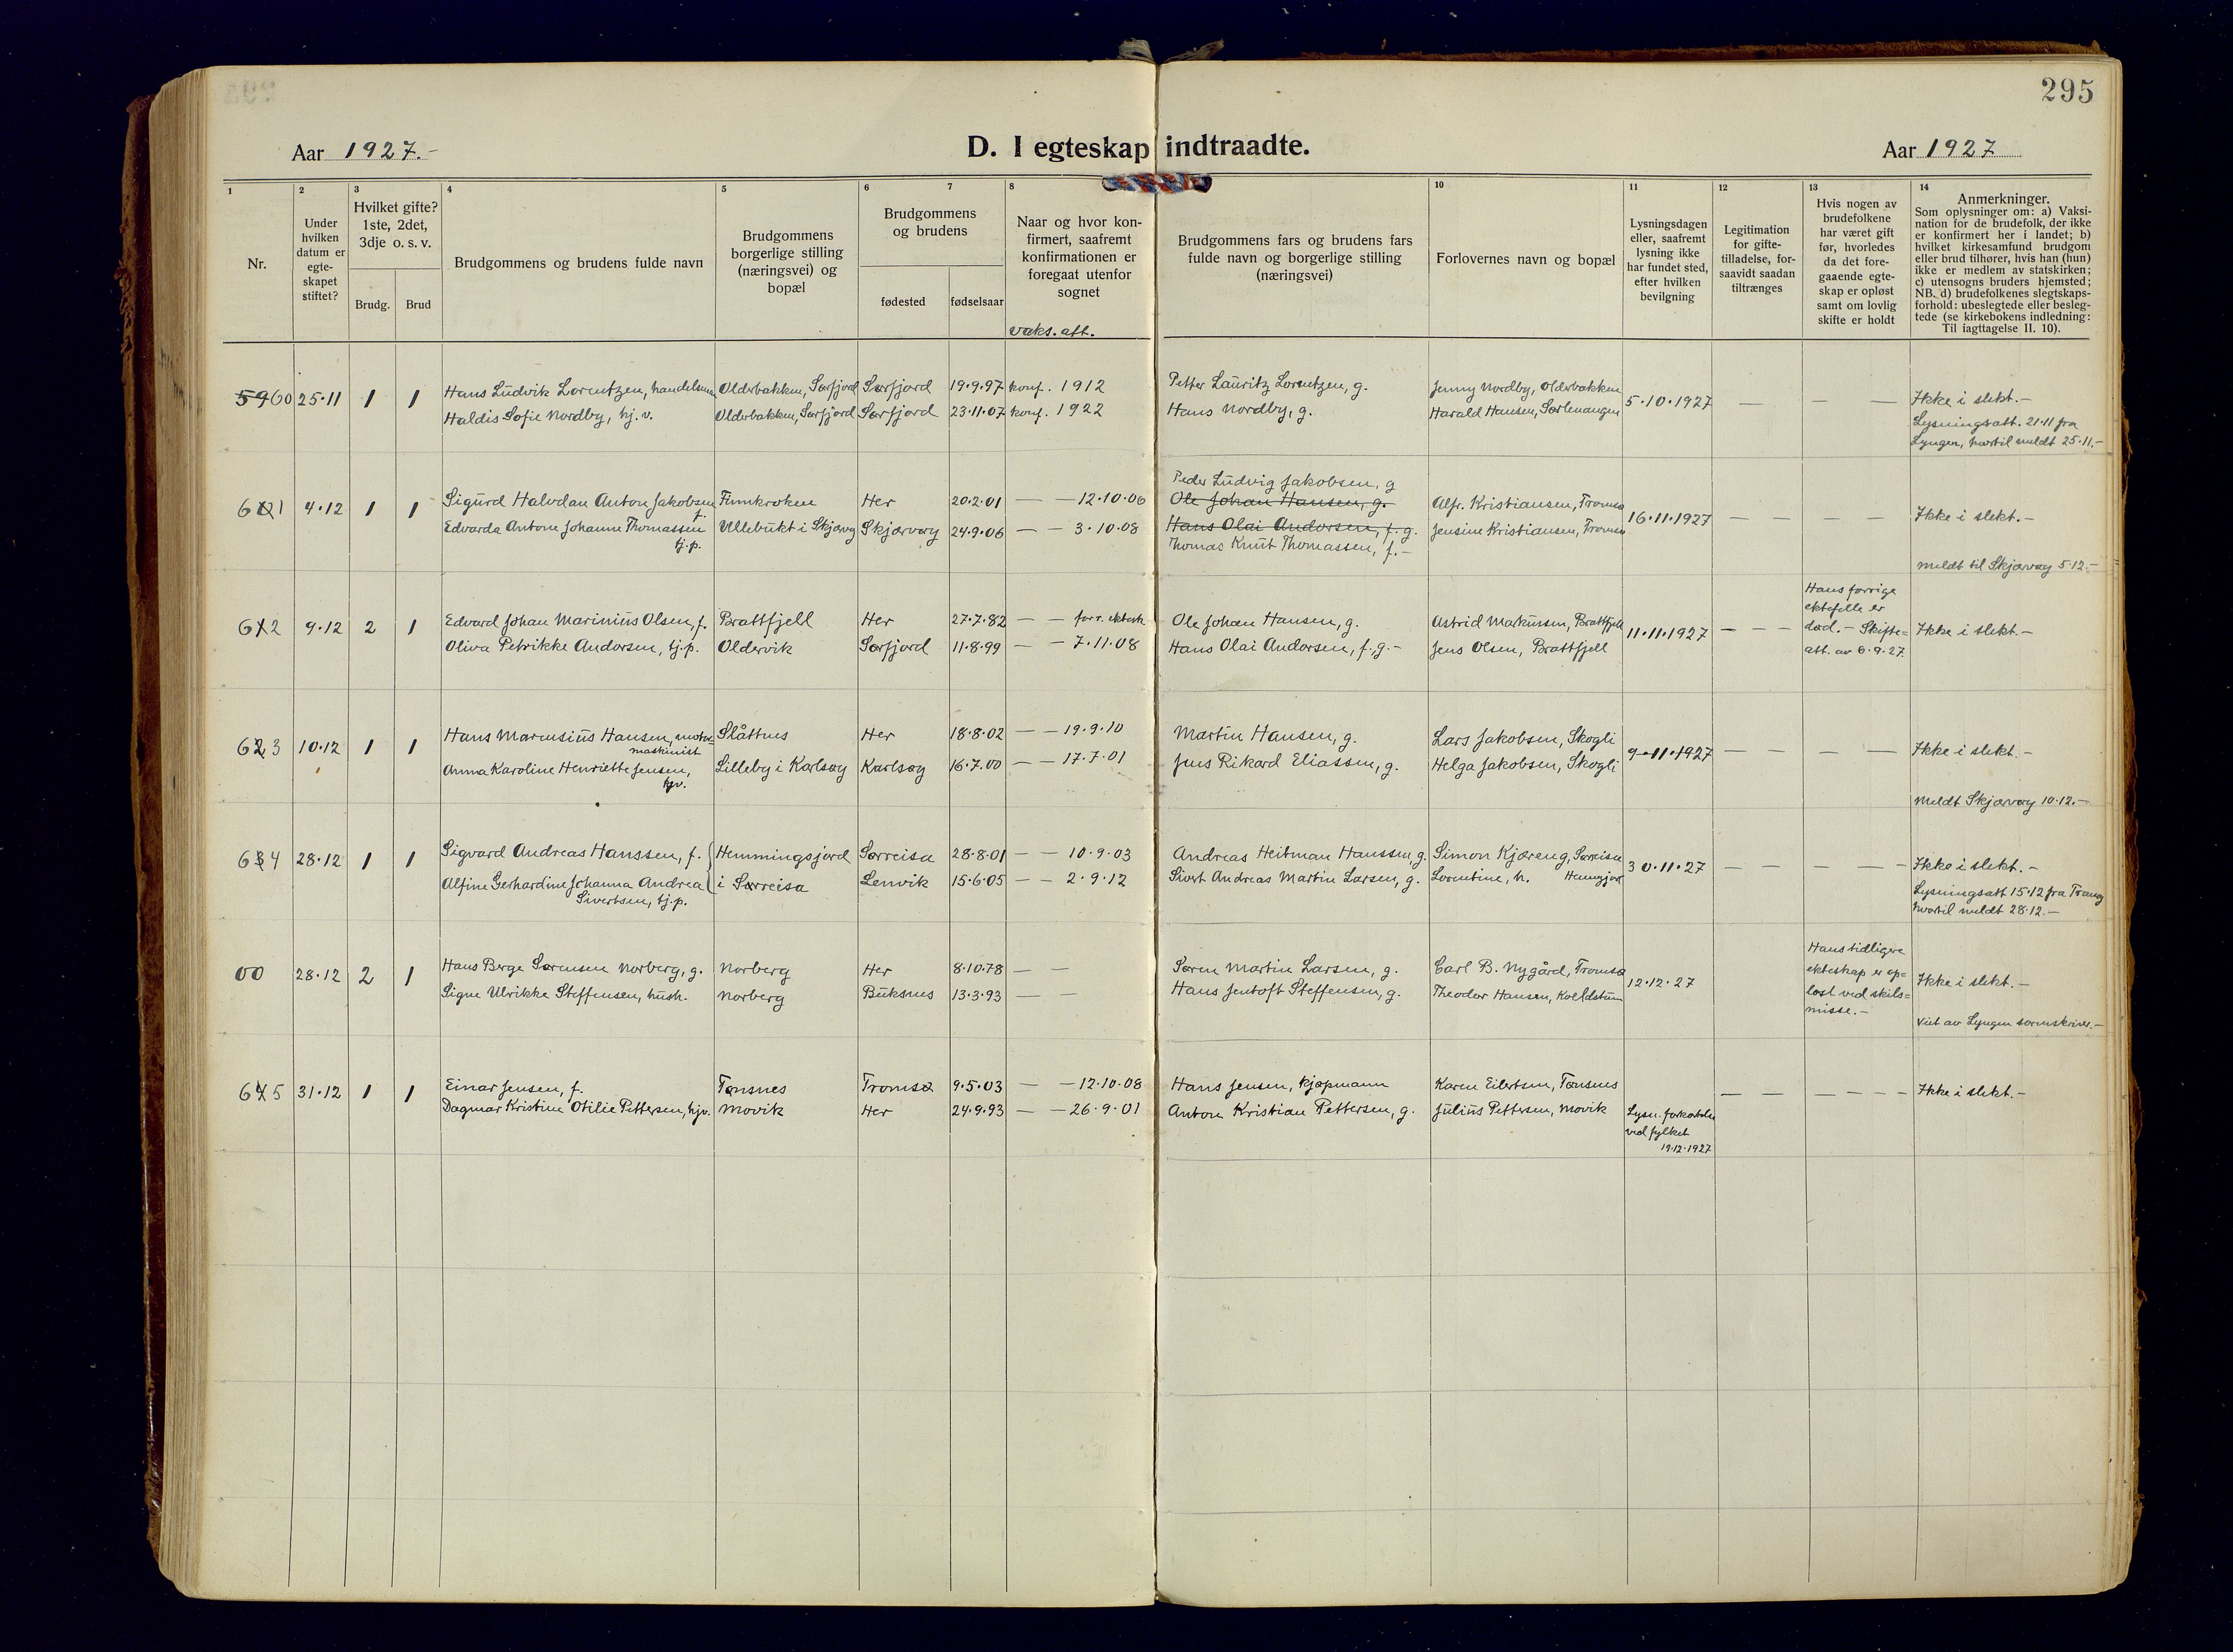 295
Aar 1927.-
D. I egteskap indtraadte.
Aar 1927
1 2 3 4 5 6 7 8 10 11 12 13 14
Nr.
Under hvilken datum er egte-skapet stiftet?
Hvilket gifte? 1ste, 2det, 3dje o. s. v.
Brudg. Brud
Brudgommens og brudens fulde navn
Brudgommens borgerlige stilling (næringsvei) og bopæl
Brudgommens og brudens
fødested fødselsaar
Naar og hvor kon-firmert, saafremt konfirmationen er foregaat utenfor sognet
vaks. att.
Brudgommens fars og brudens fars fulde navn og borgerlige stilling (næringsvei)
Forlovernes navn og bopæl
Lysningsdagen eller, saafremt lysning ikke har fundet sted, efter hvilken bevilgning
Legitimation for gifte-tilladelse, for-saavidt saadan tiltrænges
Hvis nogen av brudefolkene har været gift før, hvorledes da det fore-gaaende egte-skap er opløst samt om lovlig skifte er holdt
Anmerkninger.
Som oplysninger om: a) Vaksi-nation for de brudefolk, der ikke er konfirmert her i landet; b) hvilket kirkesamfund brudgom eller brud tilhører, hvis han (hun) ikke er medlem av statskirken; c) utensogns bruders hjemsted; NB. d) brudefolkenes slegtskaps-forhold: ubeslegtede eller beslegtede (se kirkebokens indledning: Til iagttagelse II. 10).
59 60 25.11 1 1 Hans Ludvik Lorentzen, handelsmann Olderbakken, Sørfjord Sørfjord 19.9.97 konf. 1912 Petter Lauritz Lorentzen, g. Jenny Nordby, Olderbakken 5.10.1927 — — — Ikke i slekt.-
Haldis Sofie Nordby, hj. v. Olderbakken, Sørfjord Sørfjord 23.11.07 konf. 1922 Hans Nordby, g. Harald Hansen, Sørlenangen
Lysningsatt. 21.11 fra
Lyngen, hvortil meldt 25.11.-
Peder Ludvig Jakobsen, g
61 4.12 1 1 Sigurd Halvdan Anton Jakobsen f. Finnkroken Her 20.2.01 — — 12.10.06 Ole Johan Hansen, g. Alfr. Kristiansen, Tromsø 16.11.1927 — — — — Ikke i slekt.-
Edvarda Antone Johanne Thomassen Ullebukt i Skjærvøy Skjærvøy 24.9.06 — — 3.10.08 Hans Olai Andorsen, f. g. Jensine Kristiansen, Tromsø
tj.p. Thomas Knut Thomassen, f.-
meldt til Skjærvøy 5.12.-
62 9.12 2 1 Edvard Johan Marinius Olsen, f. Brattfjell Her 27.7.82 — — forr. ektesk. Ole Johan Hansen, g. Astrid Markussen, Brattfjell 11.11.1927 — — — Hans forrige ektefelle er død.- Skifte=att. av 6.9.27. Ikke i slekt.-
Oliva Petrikke Andorsen, tj.p. Oldervik Sørfjord 11.8.99 — — 7.11.08 Hans Olai Andorsen, f.g.- Jens Olsen, Brattfjell
63 10.12 1 1 Hans Marensius Hansen, motor=maskinist Slåttnes Her 18.8.02 — — 19.9.10 Martin Hansen, g. Lars Jakobsen, Skogli 9.11.1927 — — — — Ikke i slekt.-
Anna Karoline Henriette Jensen, hjv. Lilleby i Karlsøy Karlsøy 16.7.00 — — 17.7.01 Jens Rikard Eliassen, g. Helga Jakobsen, Skogli
meldt Skjærvøy 10.12.-
64 28.12 1 1 Sigvard Andreas Hanssen, f. Hemmingsjord Sørreisa 28.8.01 — — 10.9.03 Andreas Heitman Hanssen, g. Simon Kjæreng, Sørreisa 30.11.27 — — — — Ikke i slekt.-
Alfine Gerhardine Johanna Andrea Sivertsen, tj.p. i Sørreisa Lenvik 15.6.05 — — 2.9.12 Sivert Andreas Martin Larsen, g. Lorentine, h. Hemmgjord
Lysningsatt 15.12 fra Tranøy
hvortil meldt 28.12.-
00 28.12 2 1 Hans Berge Sørensen Norberg, g. Norberg Her 8.10.78 — — Søren Martin Larsen, g. Carl B. Nygård, Tromsø 12.12.27 Hans tidligere ekteskap er op=løst ved skils=misse.- Ikke i slekt.-
Signe Ulrikke Steffensen, hush. Norberg Buksnes 13.3.93 — — Hans Jentoft Steffensen, g. Theodor Hansen, Koeldstum
Viet av Lyngen sorenskriver.-
65 31.12 1 1 Einar Jensen, f. Tønsnes Tromsø 9.5.03 — — 12.10.08 Hans Jensen, kjøpmann Karen Eilertsen, Tønsnes — — — — — — Ikke i slekt.-
Dagmar Kristine Otilie Pettersen, hjv. Movik Her 24.9.93 — — 26.9.01 Anton Kristian Pettersen, g. Julius Pettersen, Movik Lysn. forkortelse
ved fylket
19.12.1927